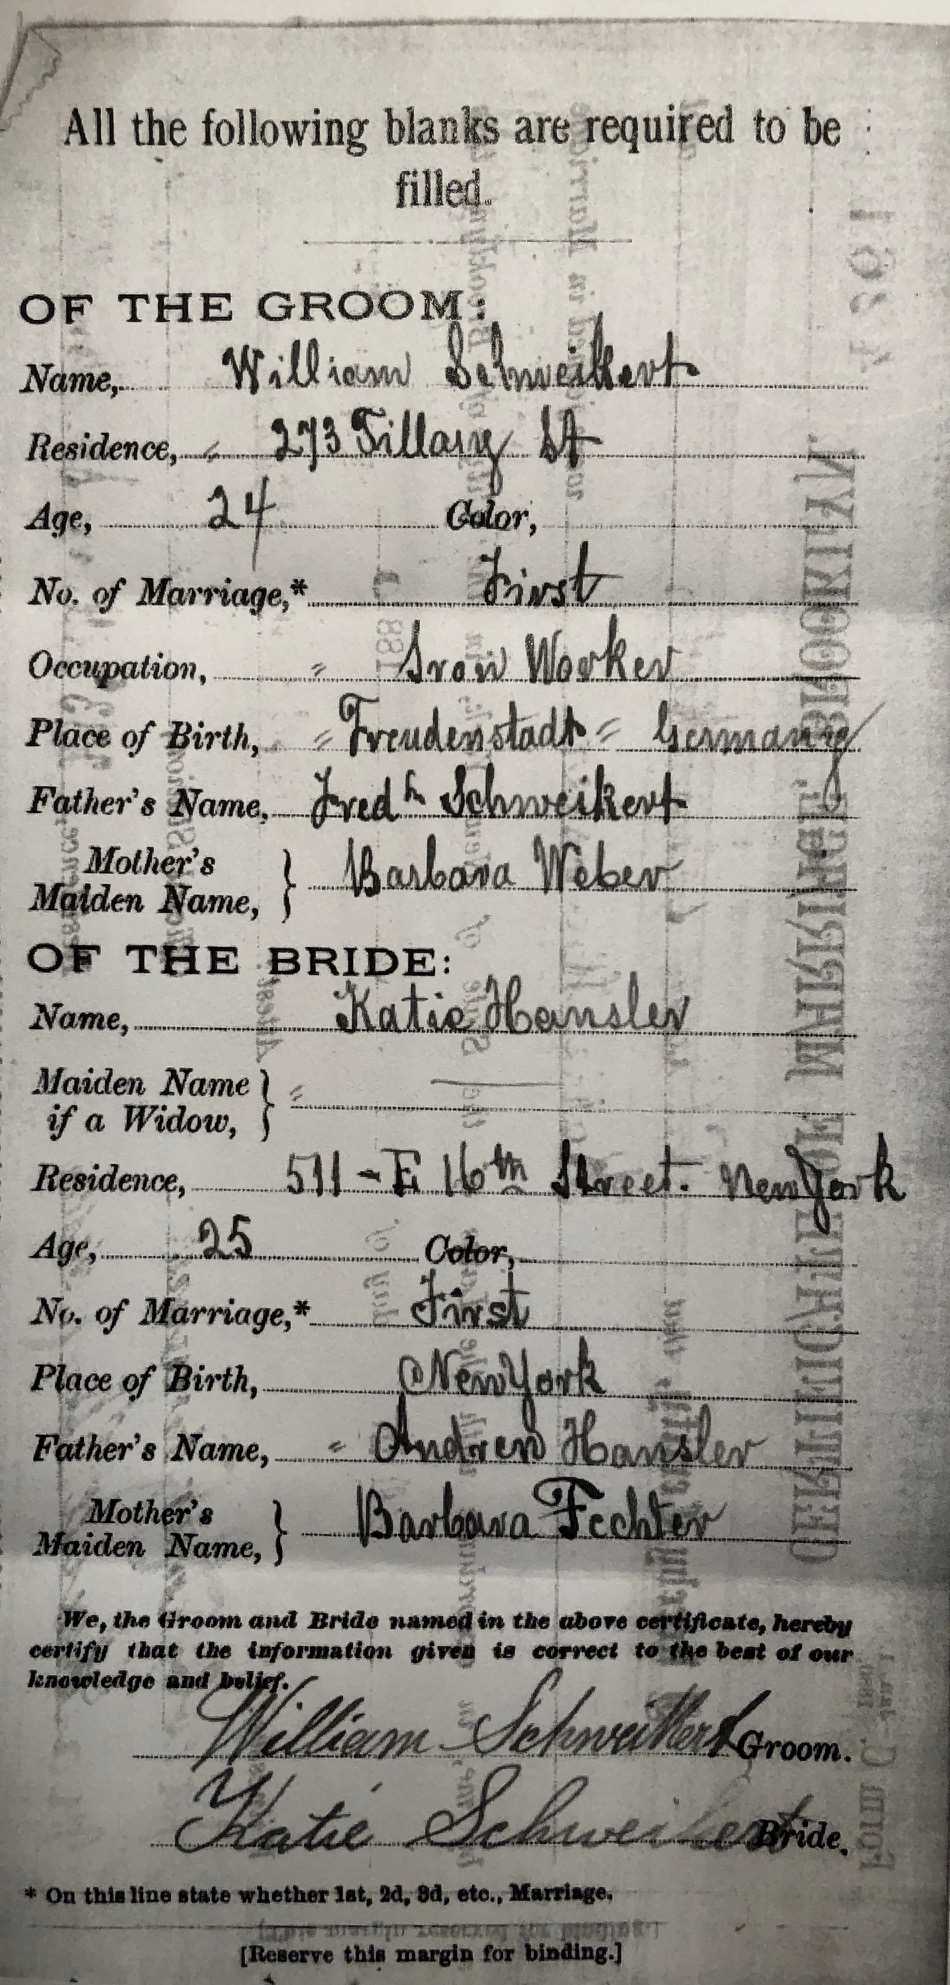 All the following blanks are required to be
filled.
OF THE GROOM:
Name, William Schweikert
Residence, 273 Tillary St
Age, 24 Color,
No. of Marriage,* First
Occupation, " Iron Worker
Place of Birth, " Freudenstadt " Germany
Father's Name, Fredk Schweikert
Mother's
Maiden Name, } Barbara Weber
OF THE BRIDE:
Name, Katie Hansler
Maiden Name
if a Widow, } "
Residence, 511 - E 16th Street. New York
Age, 25 Color,
No. of Marriage,* First
Place of Birth, New York
Father's Name, " Andrew Hansler
Mother's
Maiden Name, } Barbara Fechter
We, the Groom and Bride named in the above certificate, hereby
certify that the information given is correct to the best of our
knowledge and belief.
William Schweikert Groom.
Katie Schweikert Bride.
* On this line state whether 1st, 2d, 3d, etc., Marriage.
[Reserve this margin for binding.]
CERTIFICATE OF MARRIAGE, BROOKLYN, N.Y.